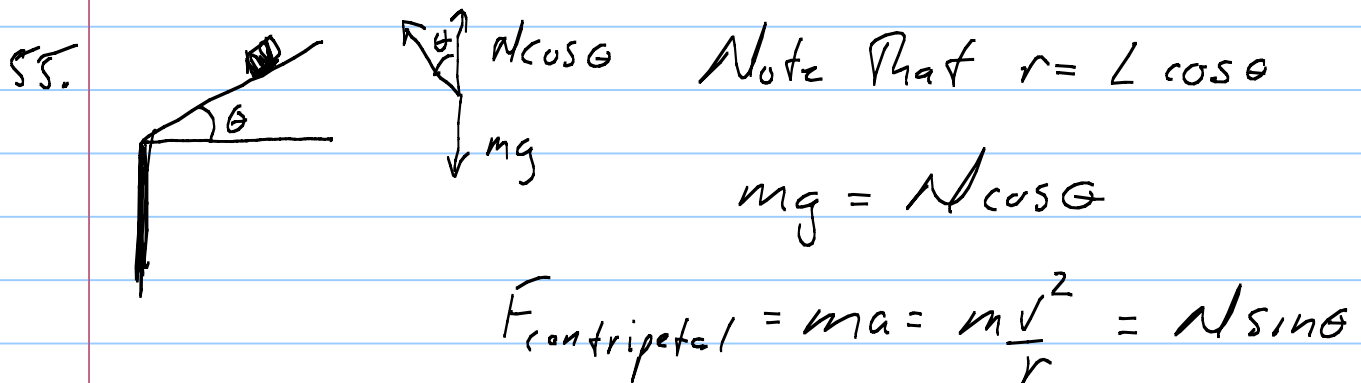 55.
θ
θ
N cos θ
mg
Note That r = L cos θ
mg = N cos θ
F centripetal = ma = mv²/r = N sin θ